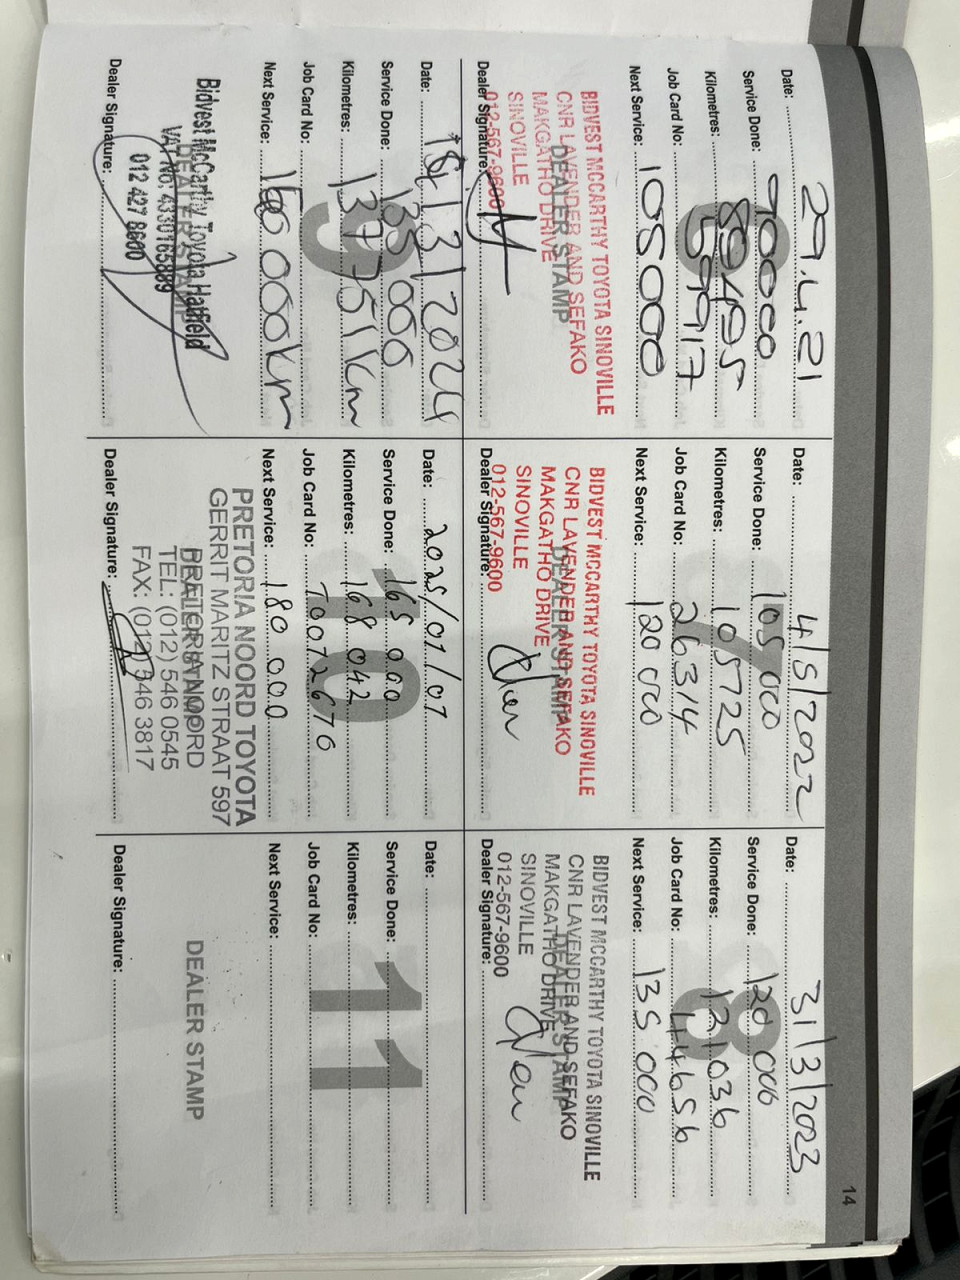 14
Date: 29.4.21
Service Done: 90000
Kilometres: 89495
Job Card No: 59917
Next Service: 105000
6
DEALER STAMP
BIDVEST MCCARTHY TOYOTA SINOVILLE
CNR LAVENDER AND SEFAKO
MAKGATHO DRIVE
SINOVILLE
012-567-9600
Dealer Signature:
Date: 4/5/2022
Service Done: 105 000
Kilometres: 105725
Job Card No: 26314
Next Service: 120 000
7
DEALER STAMP
BIDVEST MCCARTHY TOYOTA SINOVILLE
CNR LAVENDER AND SEFAKO
MAKGATHO DRIVE
SINOVILLE
012-567-9600
Dealer Signature:
Date: 31/3/2023
Service Done: 120 000
Kilometres: 121036
Job Card No: 44656
Next Service: 135 000
8
DEALER STAMP
BIDVEST MCCARTHY TOYOTA SINOVILLE
CNR LAVENDER AND SEFAKO
MAKGATHO DRIVE
SINOVILLE
012-567-9600
Dealer Signature:
Date: 13/2024
Service Done: 135 000
Kilometres: 137751 Km
Job Card No:
Next Service: 000km
9
DEALER STAMP
Bidvest McCarthy Toyota Hatfield
VAT No: 4330165889
012 427 8600
Dealer Signature:
Date: 2025/01/07
Service Done: 165 000
Kilometres: 168 042
Job Card No: 70072670
Next Service: 180 000
10
DEALER STAMP
PRETORIA NOORD TOYOTA
GERRIT MARITZ STRAAT 597
PRETORIA NOORD
TEL: (012) 546 0545
FAX: (012) 546 3817
Dealer Signature:
Date:
Service Done:
Kilometres:
Job Card No:
Next Service:
11
DEALER STAMP
Dealer Signature: